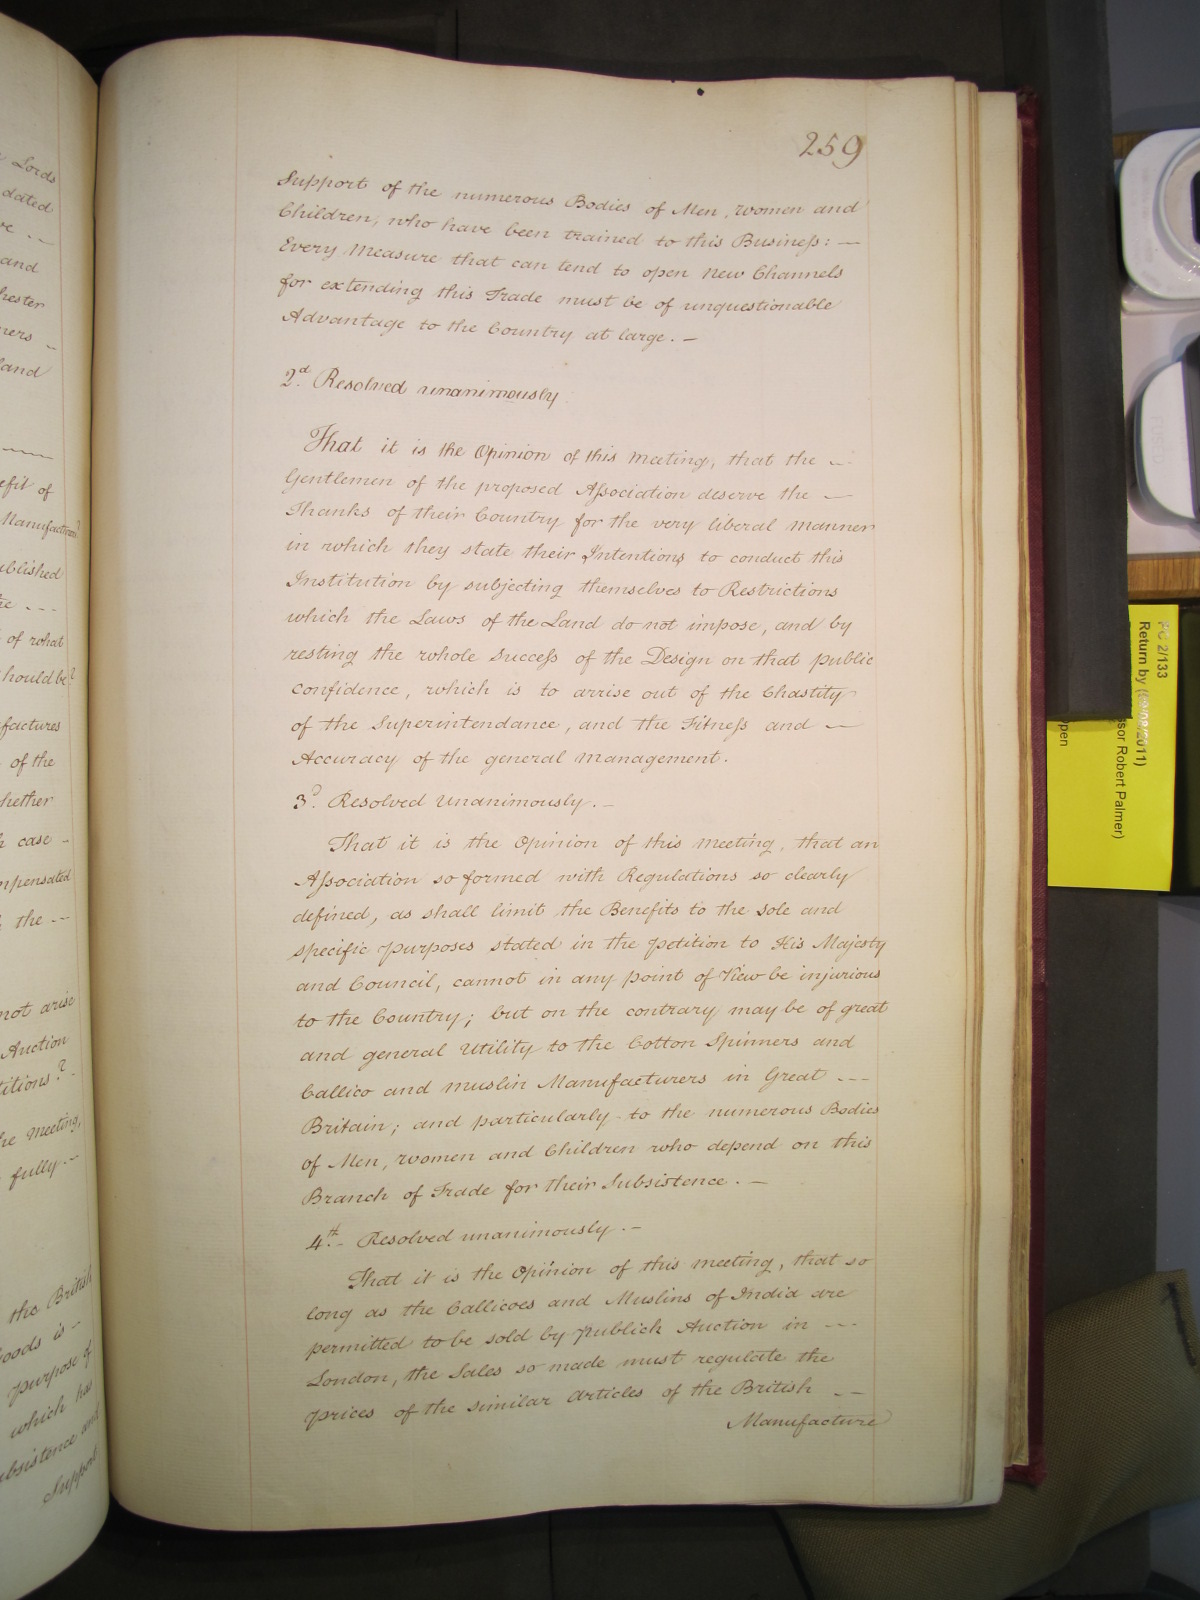 Lords
dated
and
hester
ners -
land
efit of
Manufactures?
ublished
of what
should be?
factures
of the
hether
case -
mpensated
the --
not arise
Auction
titions? -
he Meeting,
fully. -
the British
Goods is -
purpose of
which has
ubsistence and
Support
259
Support of the numerous Bodies of Men, women and
Children, who have been trained to this Business: —
Every Measure that can tend to open New Channels
for extending this Trade must be of unquestionable
Advantage to the Country at large. —
2d. Resolved unanimously
That it is the Opinion of this Meeting, that the —
Gentlemen of the proposed Association deserve the —
Thanks of their Country for the very liberal Manner
in which they state their Intentions to conduct this
Institution by subjecting themselves to Restrictions
which the Laws of the Land do not impose, and by
resting the whole Success of the Design on that public
Confidence, which is to arrise out of the Chastity
of the Superintendance, and the Fitness and —
Accuracy of the general Management.
3d. Resolved Unanimously. —
That it is the Opinion of this Meeting, that an
Association so formed with Regulations so clearly
defined, as shall limit the Benefits to the sole and
specific purposes stated in the petition to His Majesty
and Council, cannot in any point of View be injurious
to the Country; but on the contrary may be of great
and general Utility to the Cotton Spinners and
Callico and Muslin Manufacturers in Great ---
Britain; and particularly to the numerous Bodies
of Men, women and Children who depend on this
Branch of Trade for their Subsistence. —
4th. Resolved unanimously. —
That it is the Opinion of this meeting, that so
long as the Callicoes and Muslins of India are
permitted to be sold by publick Auction in ---
London, the Sales so made must regulate the
prices of the similar Articles of the British --
Manufacture
PC 2/133
Return by (09/08/2011)
ssor Robert Palmer)
ypen